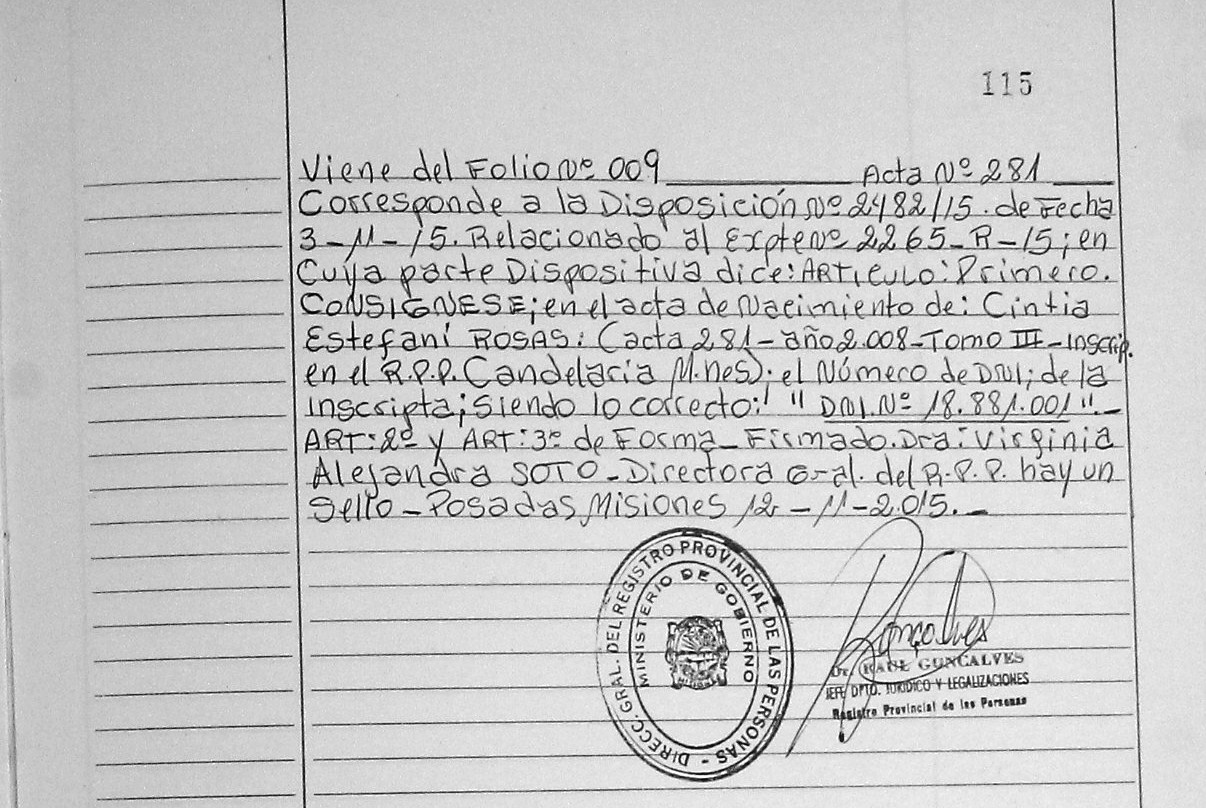 115
Viene del Folio Nº 009 Acta Nº 281
Corresponde a la Disposición Nº 2482/15. de Fecha
3-11-15. Relacionado al Expte Nº 2265-R-15; en
Cuya parte Dispositiva dice: ARTICULO: Primero.
CONSIGNESE; en el acta de Nacimiento de: Cintia
Estefaní ROSAS: (acta 281-año 2.008-Tomo III-Inscrip.
en el R.P.P. Candelaria M.nes); el Número de DNI; de la
Inscripta; Siendo lo correcto: "DNI. Nº 18.881.001".-
ART: 2º y ART: 3º de Forma_Firmado. Dra: Virginia
Alejandra SOTO-Directora Gral. del R.P.P. hay un
Sello-Posadas Misiones 12-11-2.015.-
DIRECC. GRAL. DEL REGISTRO PROVINCIAL DE LAS PERSONAS -
MINISTERIO DE GOBIERNO
Goncalves
Dr. RAUL GONCALVES
JEFE DPTO. JURIDICO Y LEGALIZACIONES
Registro Provincial de las Personas